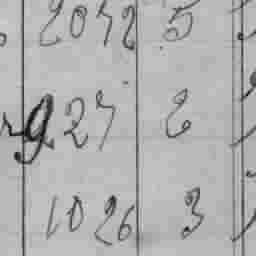 2042 5
927 2
1026 3